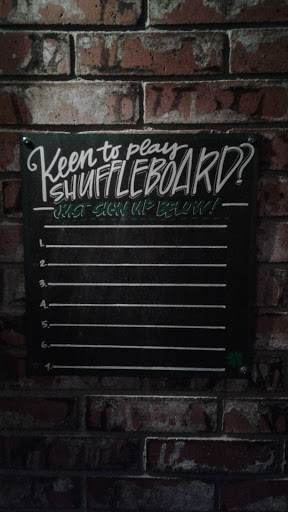 Keen to play
SHUFFLEBOARD?
JUST SIGN UP BELOW!
1.
2.
3.
4.
5.
6.
7.